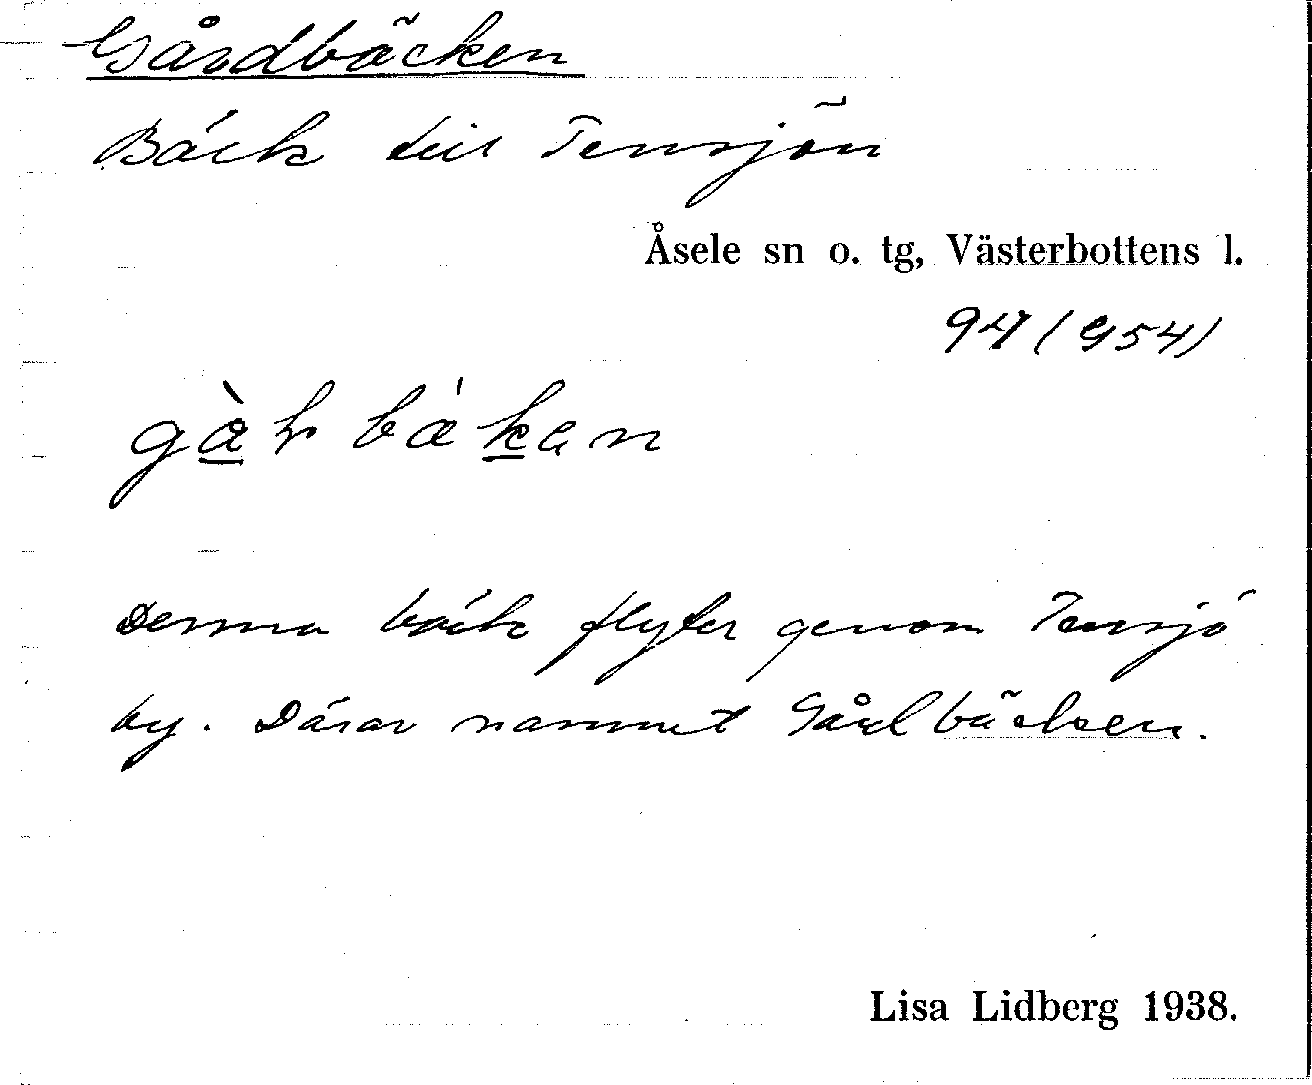 Gårdbäcken
Bäck till Tensjön
Åsele sn o. tg, Västerbottens l.
94 (954)
Denna bäck flyter genom Tensjö
by. Därav namnet Gårdbäcken.
Lisa Lidberg 1938.